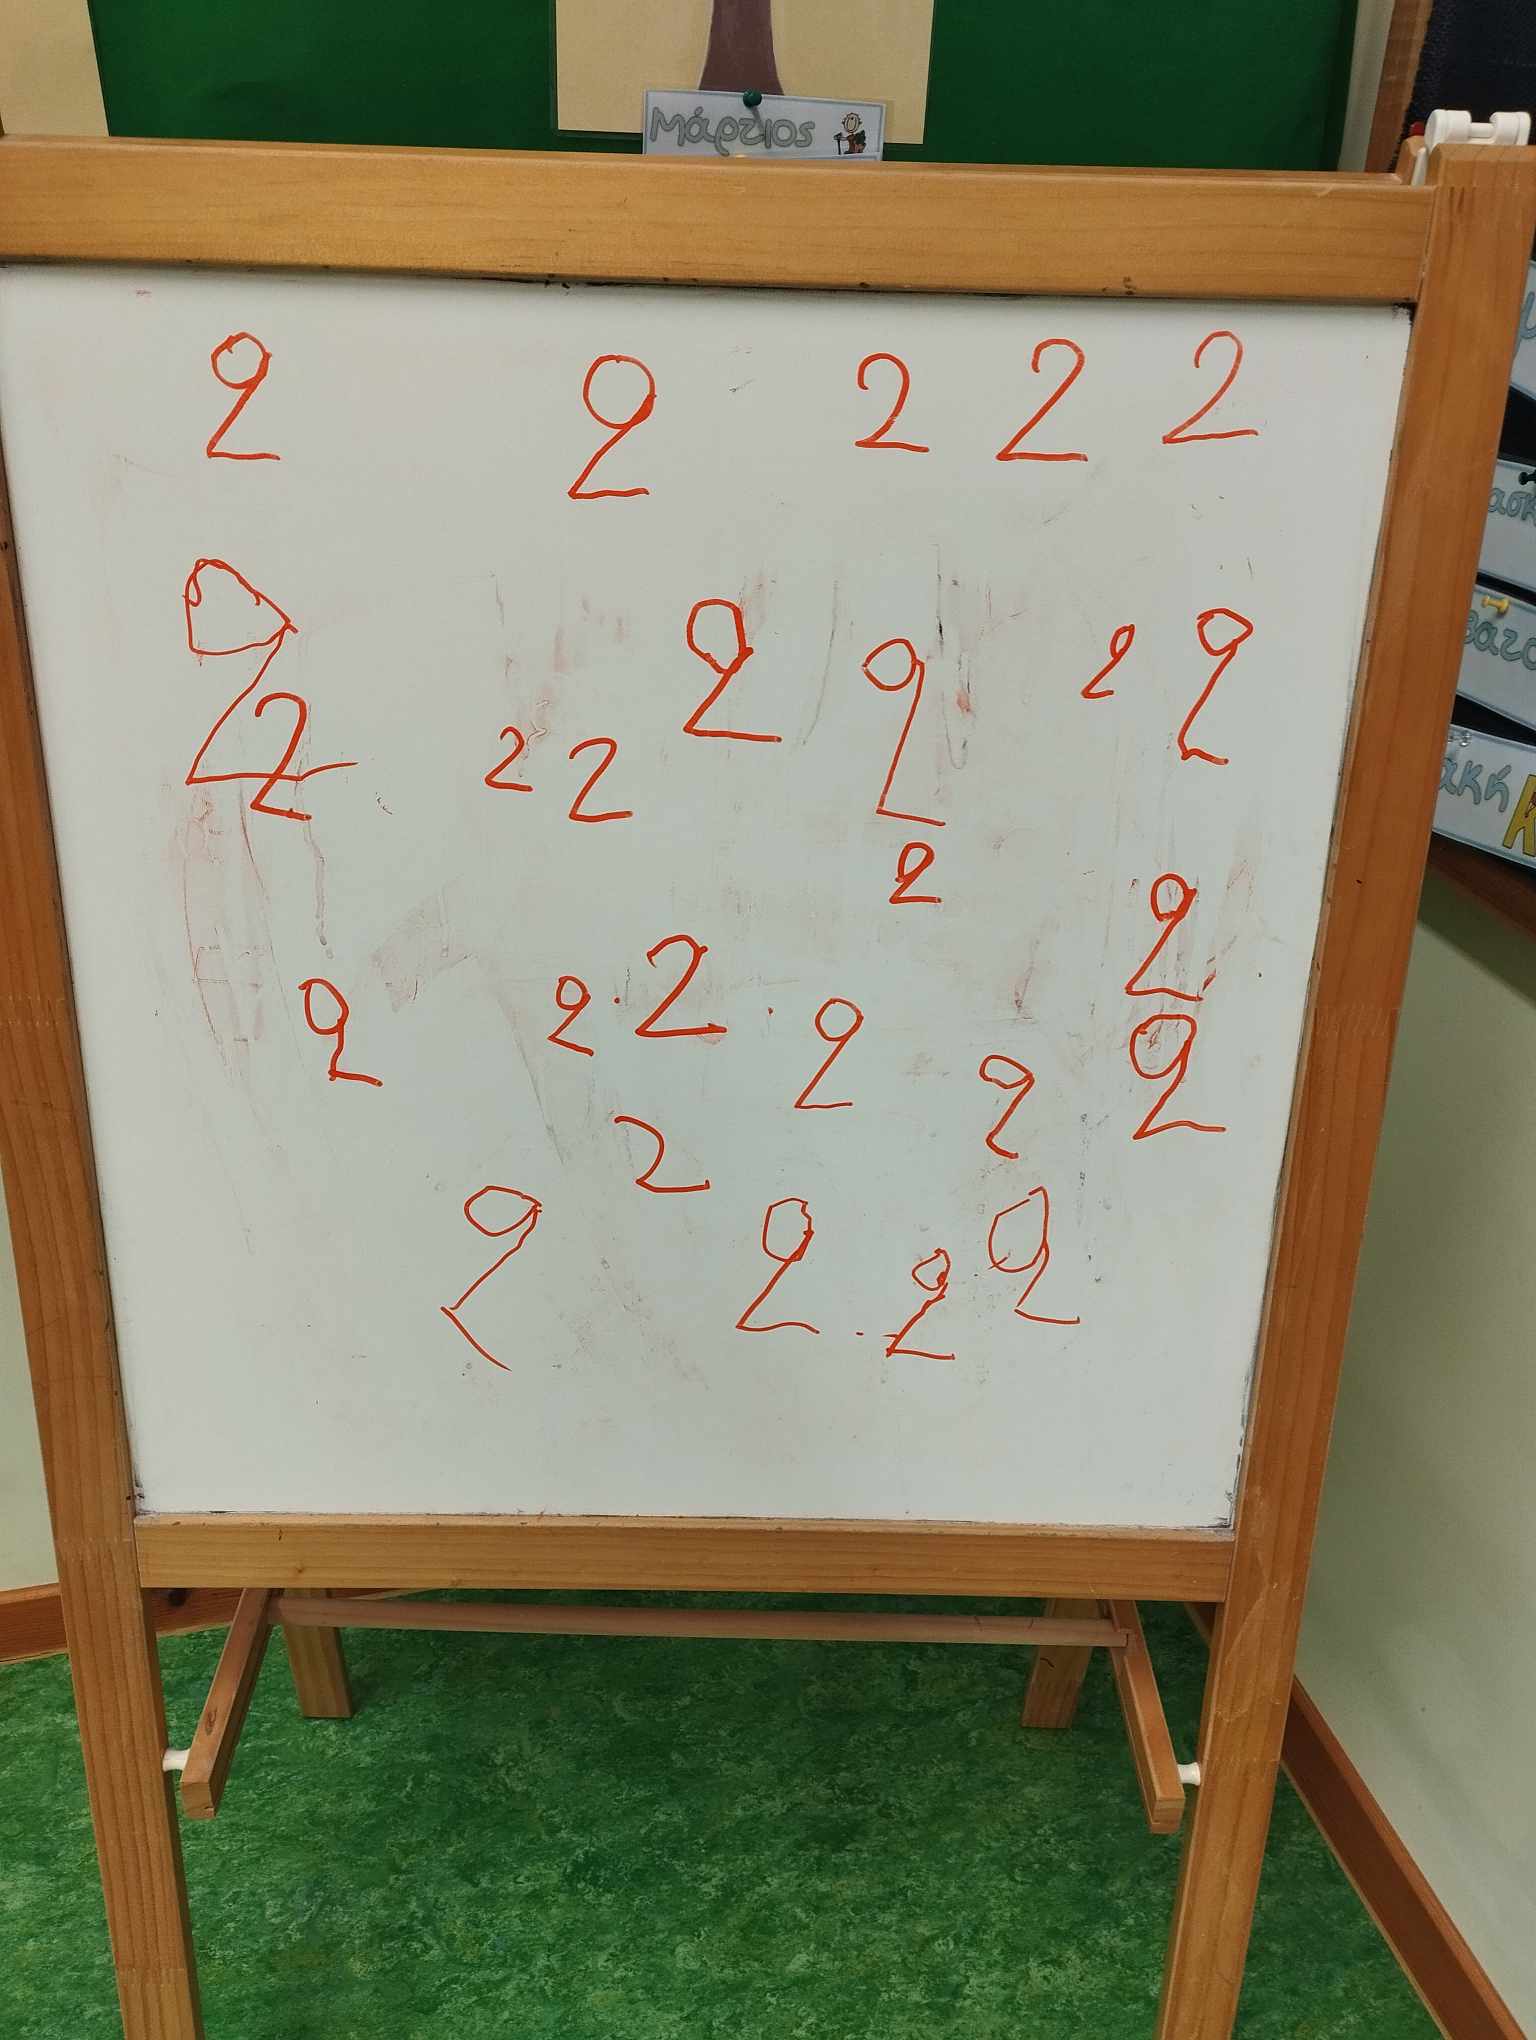 Μάρτιος
2 2 2 2 2
2 2 2 2 2
2 2 2
2 2
2 2 2 2 2 2
2
2 2 2 2
ακή